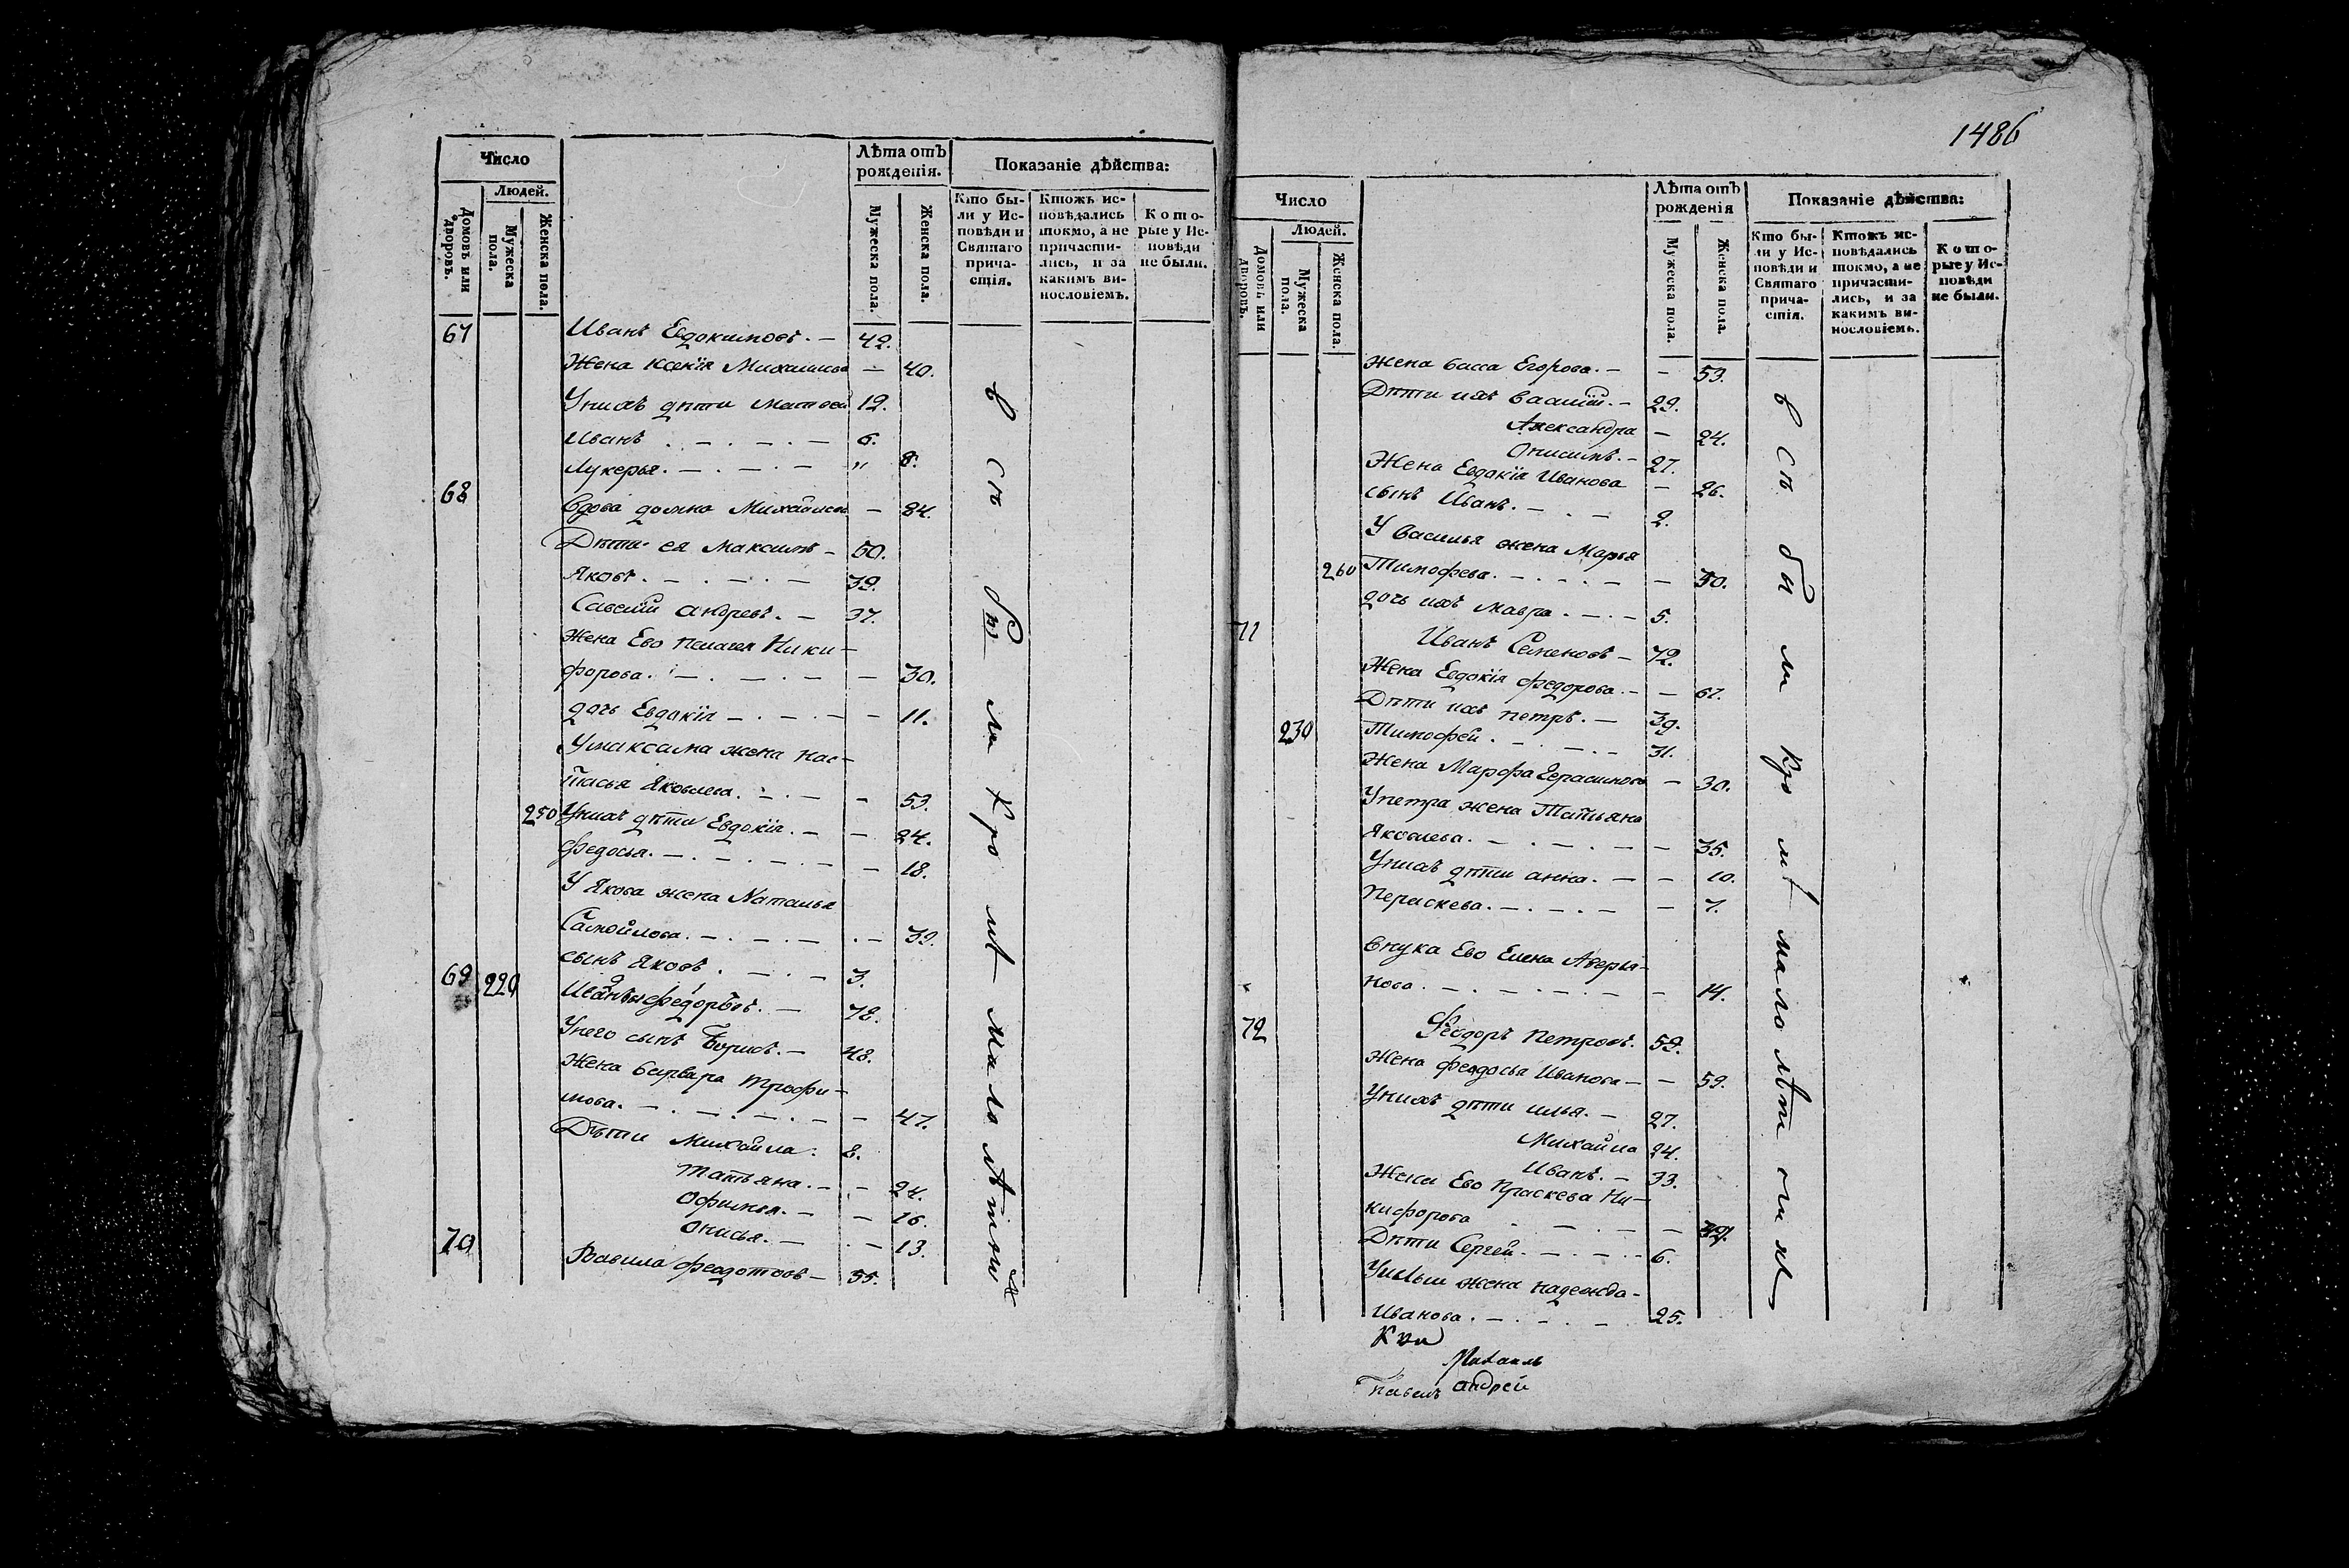 Число
Людей.
Домовъ или дворовъ.
Мужеска пола.
Женска пола.
Лѣта отъ рожденія.
Мужеска пола.
Женска пола.
Показаніе дѣйства:
Кто бы-
ли у Ис-
повѣди и
Святаго
прича-
стія.
Ктожъ ис-
повѣдались
токмо, а не
причасти-
лись, и за
какимъ ви-
нословіемъ.
Кото-
рые у Ис-
повѣди
не были.
67 Иванъ Евдокимовъ. — 42.
Жена Ксенія Михаилова — 40.
У нихъ дѣти Матвей 12.
Иванъ . — . — . — 6.
Лукерья. — . — . — " 8.
68 Вдова домна Михайлова — 84.
Дѣти ея Максимъ — 50.
Яковъ. — . — . — 39.
Савелій андревъ. — 37.
Жена Ево Пелагея Ники-
форова. — . — . — — 30.
дочь Евдокія — . — . — — 11.
У максима жена нас-
тасья Яковлева. — . — — 53.
250 У нихъ дѣти Евдокія. — — 24.
Федосья. — . — . — . — — 18.
У Якова жена Наталья
Самойлова. — . — . — . — 39.
сынъ Яковъ . — . — 3.
69 220 Иванъ Федоровъ. — 78.
У него сынъ Борисъ. — 48.
Жена Варвара Трофи-
мова. — . — . — . — — 47.
Дѣти Михайла. 8.
Татьяна. — . — 24.
Офимья. — — 16.
Онисья. — . — 13.
70 Вавила Феодотовъ — 55.
всѣ были кромѣ малолѣтныхъ
1486
Число
Людей.
Домовъ или дворовъ.
Мужеска пола.
Женска пола.
Лѣта отъ рожденія
Мужеска пола.
Женска пола.
Показаніе дѣйства:
Кто бы-
ли у Ис-
повѣди и
Святаго
прича-
стія.
Ктожъ ис-
повѣдались
токмо, а не
причасти-
лись, и за
какимъ ви-
нословіемъ.
Кото-
рые у Ис-
повѣди
не были.
Жена васса Егорова. — — 53.
Дѣти ихъ василій. — 29.
Александра — 24.
Онисимъ. — 27.
Жена Евдокія Иванова — 26.
сынъ Иванъ. — . — 2.
У василья жена Марья
260 Тимофева. — . — . — — 30.
дочь ихъ мавра. — . — 5.
71 Иванъ Семеновъ — 72.
Жена Евдокія федорова. — — 67.
Дѣти ихъ петръ. — 39.
230 Тимофей . — . — . — 31.
Жена Марфа Герасимова — 30.
У петра жена Татьяна
Яковлева. — . — . — — 35.
У нихъ дѣти анна. — — 10.
Пераскева. — . — . — — 7.
Внука Ево Елена Аверья-
нова . — . — . — . — — 14.
72 Феодоръ Петровъ. 59.
Жена феодосья Иванова — — 59.
У нихъ дѣти илья. — 27.
Михайла 24.
Иванъ. — 33.
Жена Ево Праскева Ни-
кифорова . — . — —
Дѣти Сергей. — . — . — 6.
У ильи жена надежда-
Иванова. — . — . — 25.
всѣ были кромѣ малолѣт
Андрей